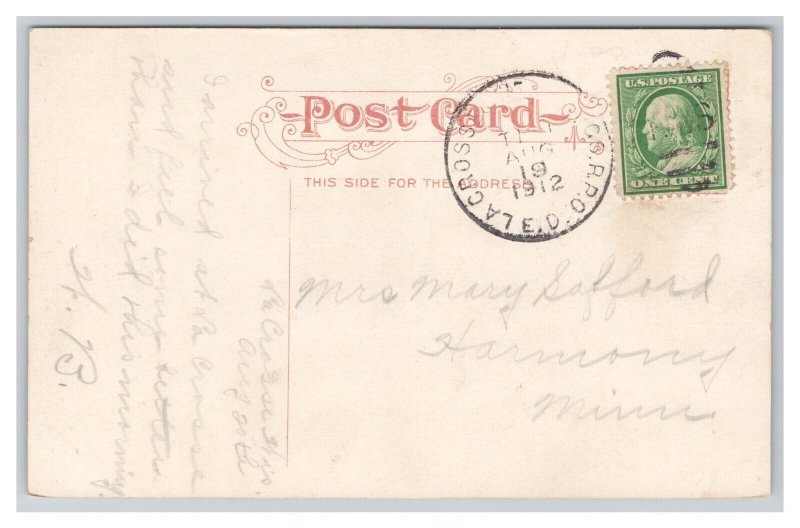 Post Card
THIS SIDE FOR THE ADDRESS
LA CROSS
R.P.O.
E.D.
AUG
19
1912
U.S. POSTAGE
ONE CENT
La Crosse Wis
Aug
I arrived at La Crosse
and feel some better
than I did this morning
H. B.
Mrs Mary Safford
Harmony
Minn.